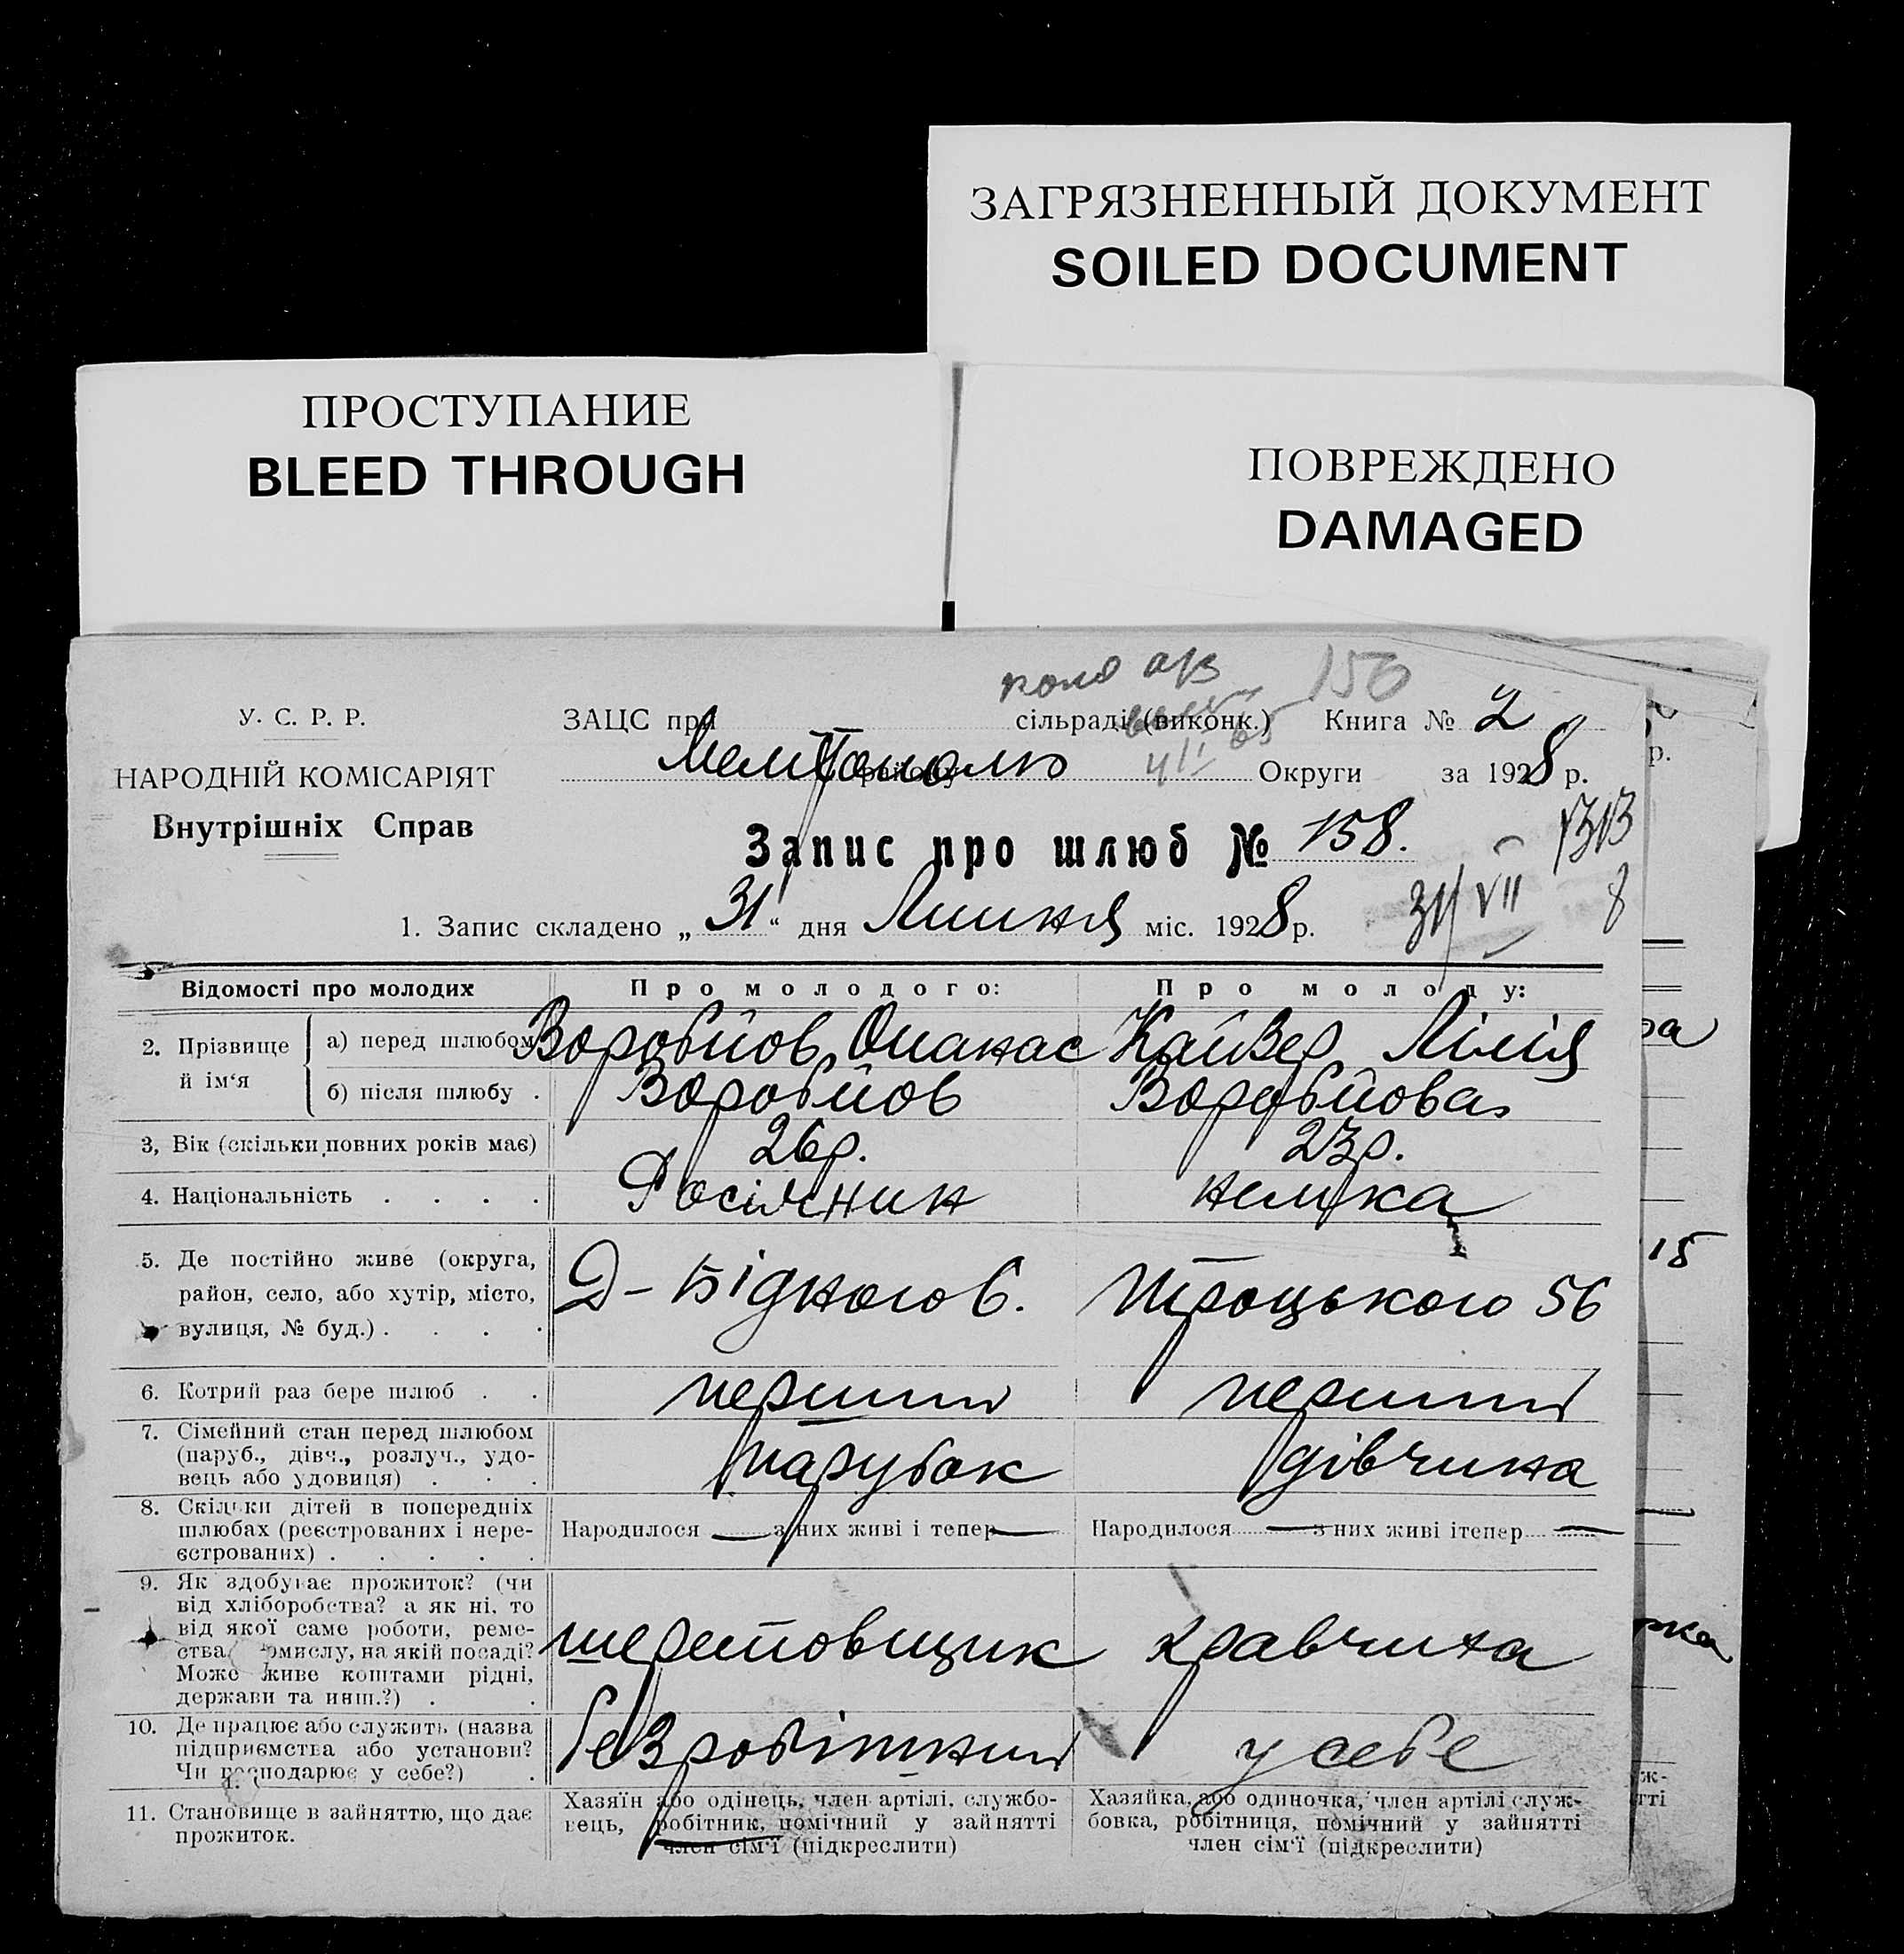 ЗАГРЯЗНЕННЫЙ ДОКУМЕНТ
SOILED DOCUMENT
ПРОСТУПАНИЕ
BLEED THROUGH
ПОВРЕЖДЕНО
DAMAGED
156
У. С. Р. Р.
НАРОДНІЙ КОМІСАРІЯТ
Внутрішніх Справ
ЗАЦС при сільраді (виконк.) Книга № 2
Округи за 1928 р.
Запис про шлюб № 158.
1. Запис складено „31“ дня Липня міс. 1928 р.
31/VII 8
Відомості про молодих
Про молодого:
Про молоду:
2. Прізвище й ім‘я
а) перед шлюбом
Воробйов Опанас
Кайзер Лілія
б) після шлюбу
Воробйов
Воробйова
3, Вік (скільки повних років має)
26р.
23р.
4. Національність
Росіянин
німка
5. Де постійно живе (округа,
район, село, або хутір, місто,
вулиця, № буд.)
Д-Бідного 6.
Троцького 56
6. Котрий раз бере шлюб
перший
перший
7. Сімейний стан перед шлюбом
(паруб., дівч., розлуч., удо-
вець або удовиця)
парубок
дівчина
8. Скільки дітей в попередніх
шлюбах (реєстрованих і нере-
єстрованих)
Народилося — з них живі і тепер —
Народилося — з них живі ітепер —
9. Як здобуває прожиток? (чи
від хліборобства? а як ні, то
від якої саме роботи, реме-
ства, омислу, на якій посаді?
Може живе коштами рідні,
держави та инш.?)
шеретовщик
кравчиха
10. Де працює або служить (назва
підприємства або установи?
Чи господарює у себе?)
безробітний
у себе
11. Становище в зайняттю, що дає
прожиток.
Хазяїн або одінець, член артілі, службо-
вець, робітник, помічний у зайнятті
член сім‘ї (підкреслити)
Хазяйка, або одиночка, член артілі служ-
бовка, робітниця, помічний у зайнятті
член сім‘ї (підкреслити)
р.
15